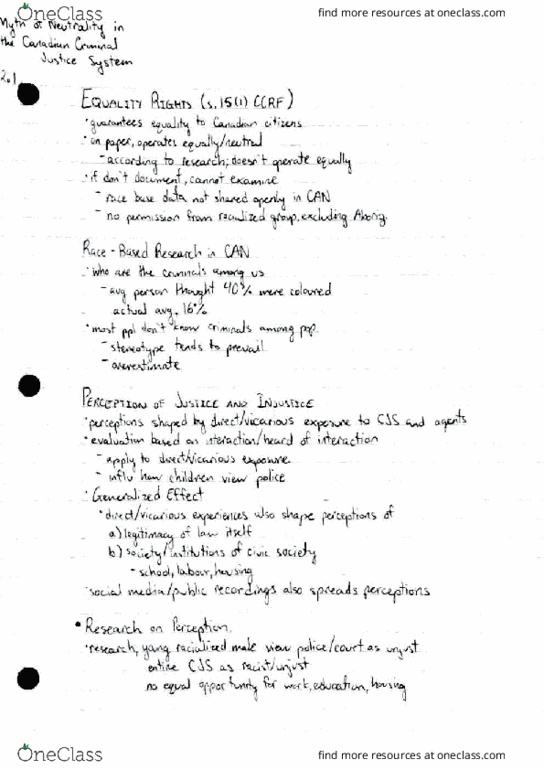 OneClass
find more resources at oneclass.com
Myth of Neutrality in
the Canadian Criminal
Justice System
2.1
EQUALITY RIGHTS (s.15(1) CCRF)
• guarantees equality to Canadian citizens
• on paper, operates equally/neutral
– according to research; doesn't operate equally
• if don't document, cannot examine
– race base data not shared openly in CAN
– no permission from racialized group, excluding Aborig.
Race - Based Research in CAN
• who are the criminals among us
– avg person thought 40% were coloured
actual avg. 16%
• most ppl don't know criminals among pop.
– stereotype tends to prevail
– overestimate
PERCEPTION OF JUSTICE AND INJUSTICE
• perceptions shaped by direct/vicarious exposure to CJS and agents
• evaluation based on interaction/heard of interaction
– apply to direct/vicarious exposure
– influ how children view police
• Generalized Effect
• direct/vicarious experiences also shape perceptions of
a) legitimacy of law itself
b) society/institutions of civic society
– school, labour, housing
• social media/public recordings also spreads perceptions
• Research on Perception
• research, young racialized male view police/court as unjust
entire CJS as racist/unjust
no equal opportunity for work, education, housing
OneClass
find more resources at oneclass.com